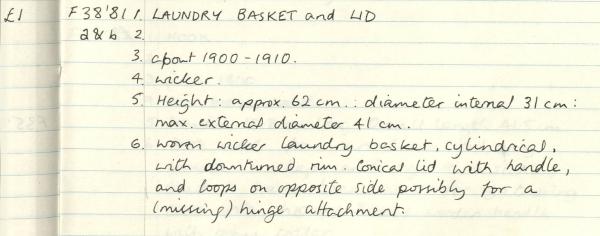 £1 F38'81 1. LAUNDRY BASKET and LID
a&b 2.
3. about 1900-1910.
4. wicker.
5. Height: approx. 62 cm.: diameter internal 31 cm:
max. external diameter 41 cm.
6. woven wicker laundry basket, cylindrical,
with downturned rim. Conical lid with handle,
and loops on opposite side possibly for a
(missing) hinge attachment.